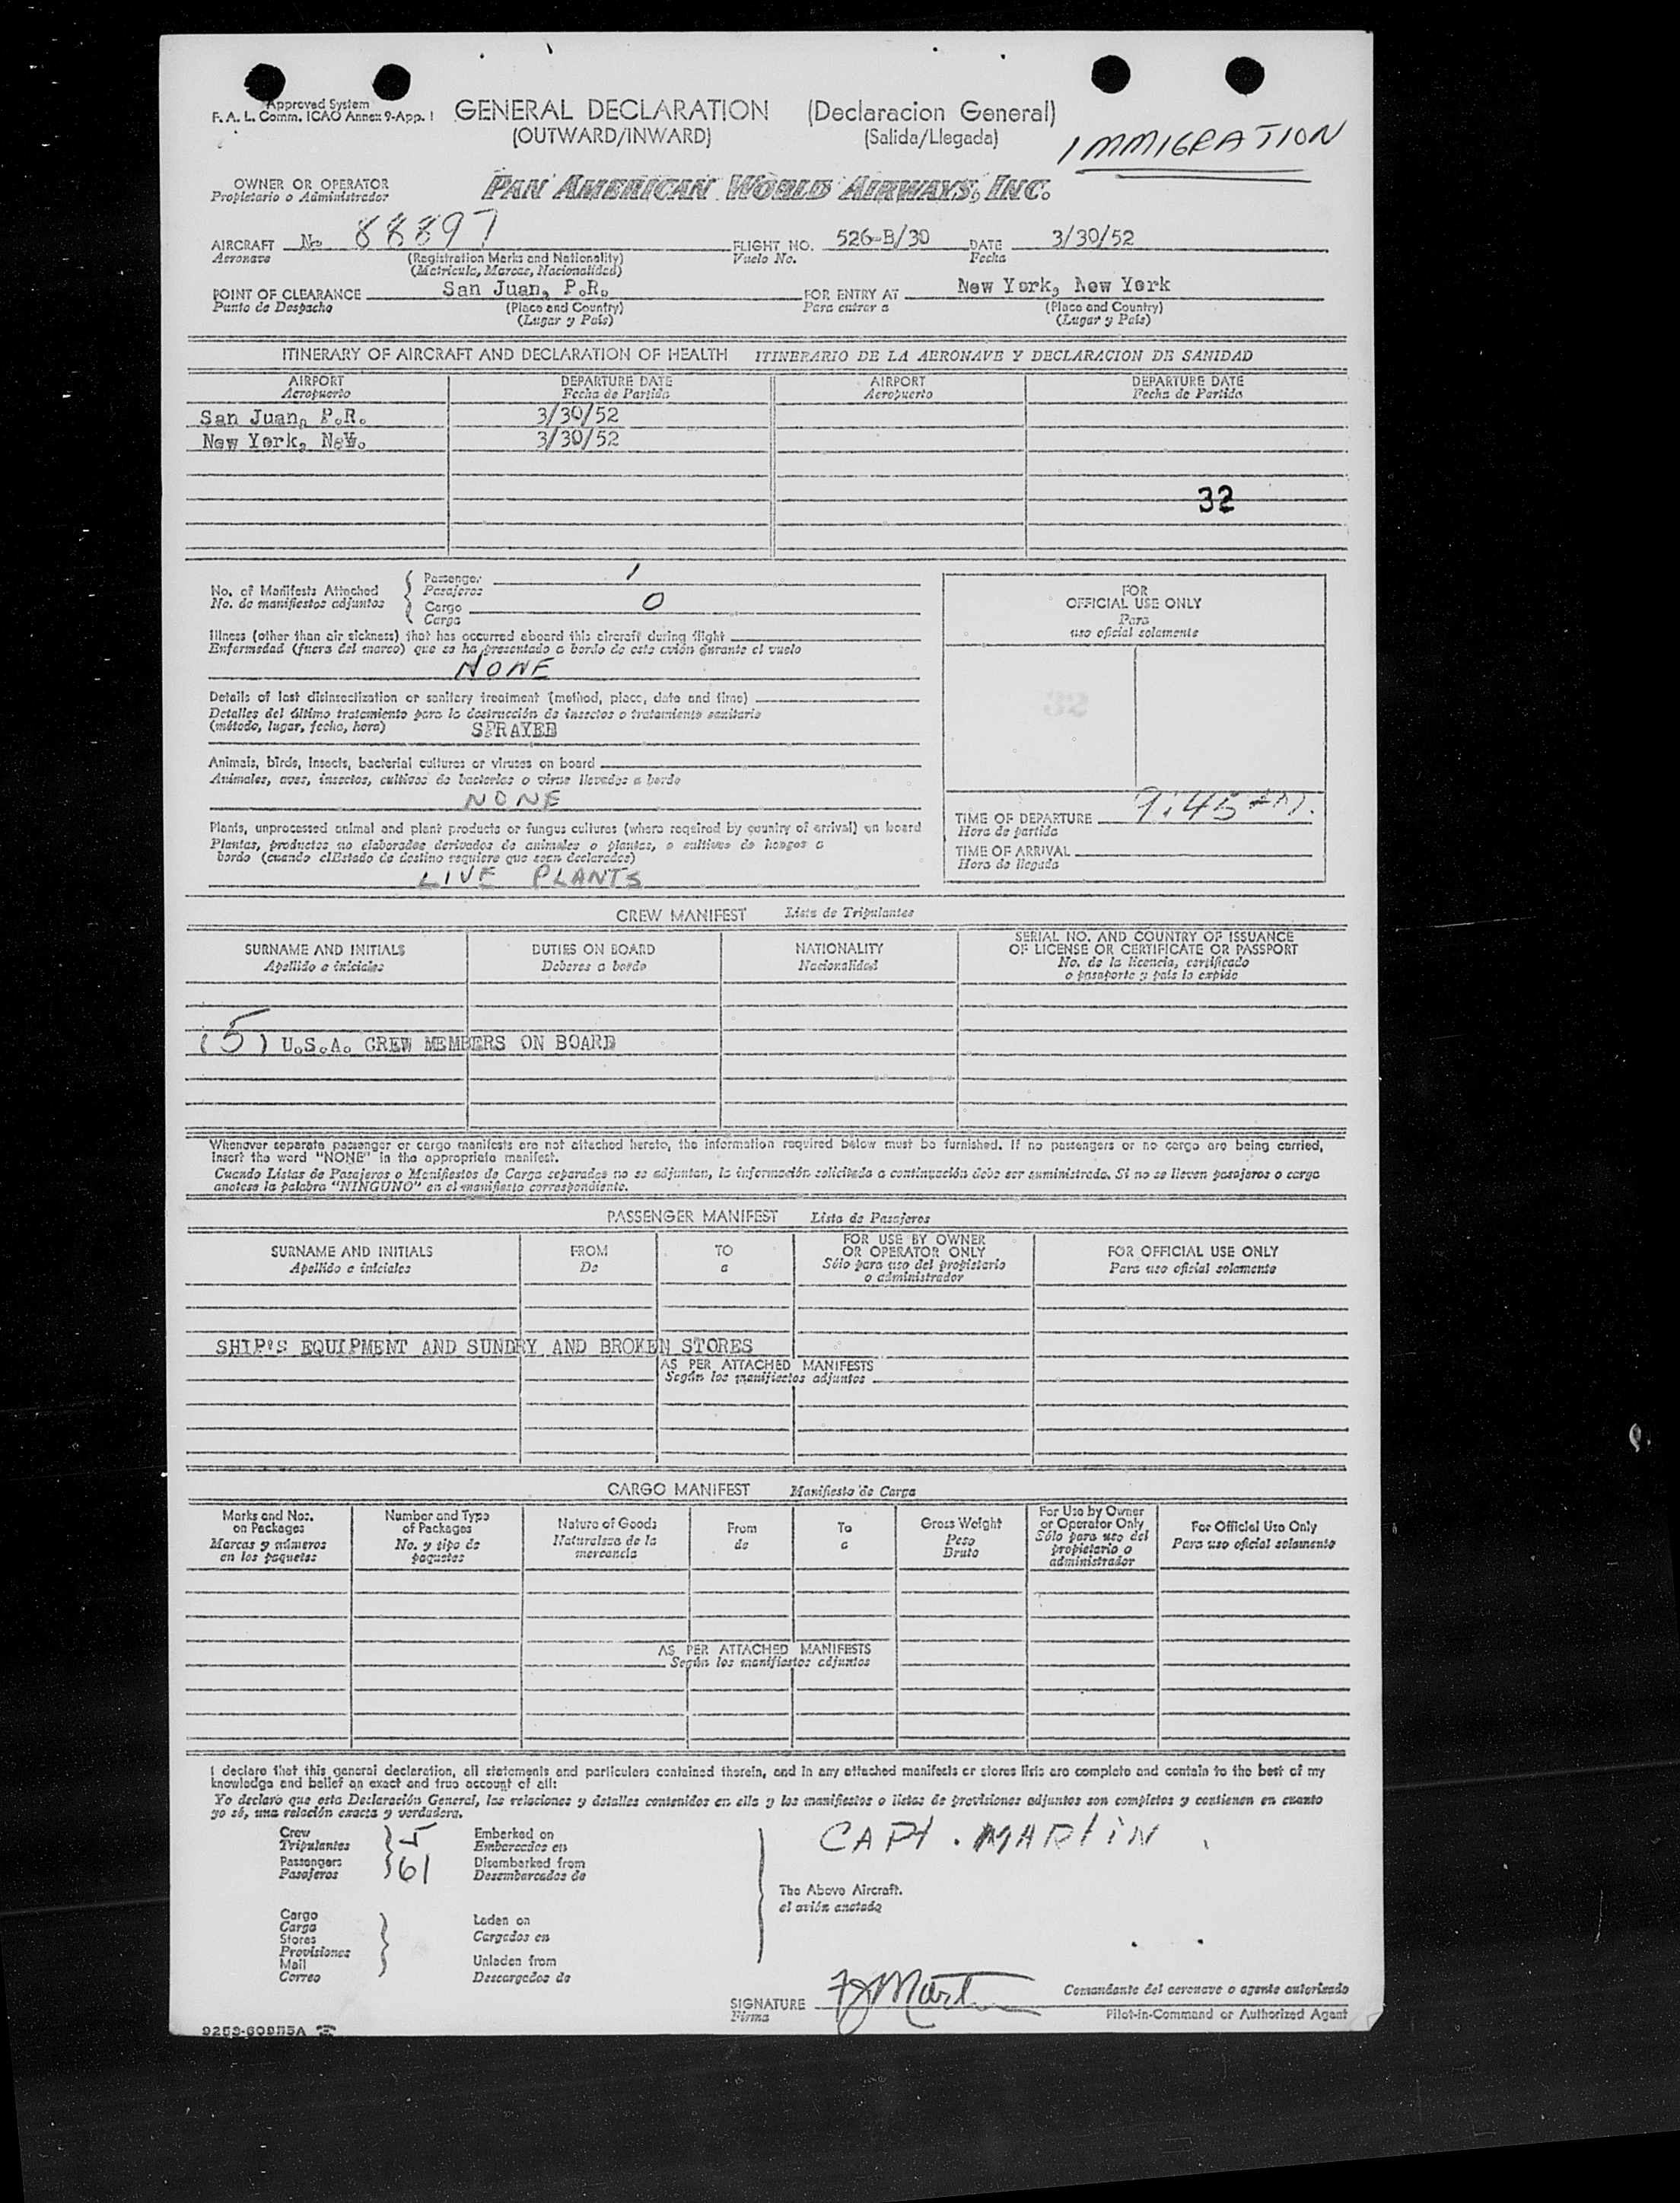 Approved System
F. A. L. Comm. ICAO Annex 9-App. 1
GENERAL DECLARATION (Declaracion General)
(OUTWARD/INWARD) (Salida/Llegada)
IMMIGRATION
OWNER OR OPERATOR
Propietario o Administrador
PAN AMERICAN WORLD AIRWAYS, INC.
AIRCRAFT No 88897 FLIGHT NO. 526-B/30 DATE 3/30/52
Aeronave (Registration Marks and Nationality) Vuelo No. Fecha
(Matricula, Marcas, Nacionalidad)
POINT OF CLEARANCE San Juan, P.R. FOR ENTRY AT New York, New York
Punto de Despacho (Place and Country) Para entrar a (Place and Country)
(Lugar y Pais) (Lugar y Pais)
ITINERARY OF AIRCRAFT AND DECLARATION OF HEALTH ITINERARIO DE LA AERONAVE Y DECLARACION DE SANIDAD
AIRPORT DEPARTURE DATE AIRPORT DEPARTURE DATE
Aeropuerto Fecha de Partida Aeropuerto Fecha de Partida
San Juan, P.R. 3/30/52
New York, N.Y. 3/30/52
32
No. of Manifests Attached Passenger 1
No. de manifiestos adjuntos Pasajeros
Cargo 0
Carga
Illness (other than air sickness) that has occurred aboard this aircraft during flight
Enfermedad (fuera del mareo) que se ha presentado a bordo de este avión durante el vuelo
NONE
Details of last disinsectization or sanitary treatment (method, place, date and time)
Detalles del último tratamiento para la destrucción de insectos o tratamiento sanitario
(método, lugar, fecha, hora) SPRAYED
Animals, birds, insects, bacterial cultures or viruses on board
Animales, aves, insectos, cultivos de bacterias o virus llevados a bordo
NONE
Plants, unprocessed animal and plant products or fungus cultures (where required by country of arrival) on board
Plantas, productos no elaborados derivados de animales o plantas, o cultivos de hongos a
bordo (cuando elEstado de destino requiere que sean declarados)
LIVE PLANTS
FOR
OFFICIAL USE ONLY
Para
uso oficial solamente
TIME OF DEPARTURE 9:45
Hora de partida
TIME OF ARRIVAL
Hora de llegada
CREW MANIFEST Lista de Tripulantes
SURNAME AND INITIALS DUTIES ON BOARD NATIONALITY SERIAL NO. AND COUNTRY OF ISSUANCE
OF LICENSE OR CERTIFICATE OR PASSPORT
Apellido e iniciales Deberes a bordo Nacionalidad No. de la licencia, certificado
o pasaporte y pais lo expide
(5) U.S.A. CREW MEMBERS ON BOARD
Whenever separate passenger or cargo manifests are not attached hereto, the information required below must be furnished. If no passengers or no cargo are being carried,
insert the word "NONE" in the appropriate manifest.
Cuando Listas de Pasajeros o Manifiestos de Carga separados no se adjuntan, la información solicitada a continuación debe ser suministrada. Si no se lleven pasajeros o carga
anotese la palabra "NINGUNO" en el manifiesto correspondiente.
PASSENGER MANIFEST Lista de Pasajeros
SURNAME AND INITIALS FROM TO FOR USE BY OWNER
OR OPERATOR ONLY FOR OFFICIAL USE ONLY
Apellido e iniciales De a Sólo para uso del propietario
o administrador Para uso oficial solamente
SHIP'S EQUIPMENT AND SUNDRY AND BROKEN STORES
AS PER ATTACHED MANIFESTS
Según los manifiestos adjuntos
CARGO MANIFEST Manifiesto de Carga
Marks and Nos.
on Packages
Marcas y números
en los paquetes
Number and Type
of Packages
No. y tipo de
paquetes
Nature of Goods
Naturaleza de la
mercancia
From
de
To
a
Gross Weight
Peso
Bruto
For Use by Owner
or Operator Only
Sólo para uso del
propietario o
administrador
For Official Use Only
Para uso oficial solamente
AS PER ATTACHED MANIFESTS
Según los manifiestos adjuntos
I declare that this general declaration, all statements and particulars contained therein, and in any attached manifests or stores lists are complete and contain to the best of my
knowledge and belief an exact and true account of all:
Yo declaro que esta Declaración General, las relaciones y detalles contenidos en ella y los manifiestos o listas de provisiones adjuntos son completos y contienen en cuanto
yo sé, una relación exacta y verdadera.
Crew 5 Embarked on
Tripulantes Embarcados en
Passengers 61 Disembarked from
Pasajeros Desembarcados de
CAPT. MARTIN
The Above Aircraft.
el avión anotado
Cargo
Carga
Stores
Provisiones
Mail
Correo
Laden on
Cargados en
Unladen from
Descargados de
SIGNATURE FJ Martin
Firma
Comandante del aeronave o agente autorizado
Pilot-in-Command or Authorized Agent